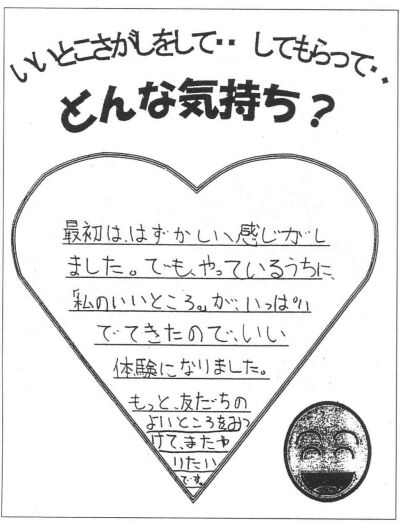 いいとこさがしをして‥ してもらって‥
どんな気持ち?
最初は、はずかしい、感じがし
ました。でも、やっているうちに、
「私のいいところ。」が、いっぱい
でてきたので、いい
体験になりました。
もっと、友だちの
よいところをみつ
けて、またや
りたい
です。